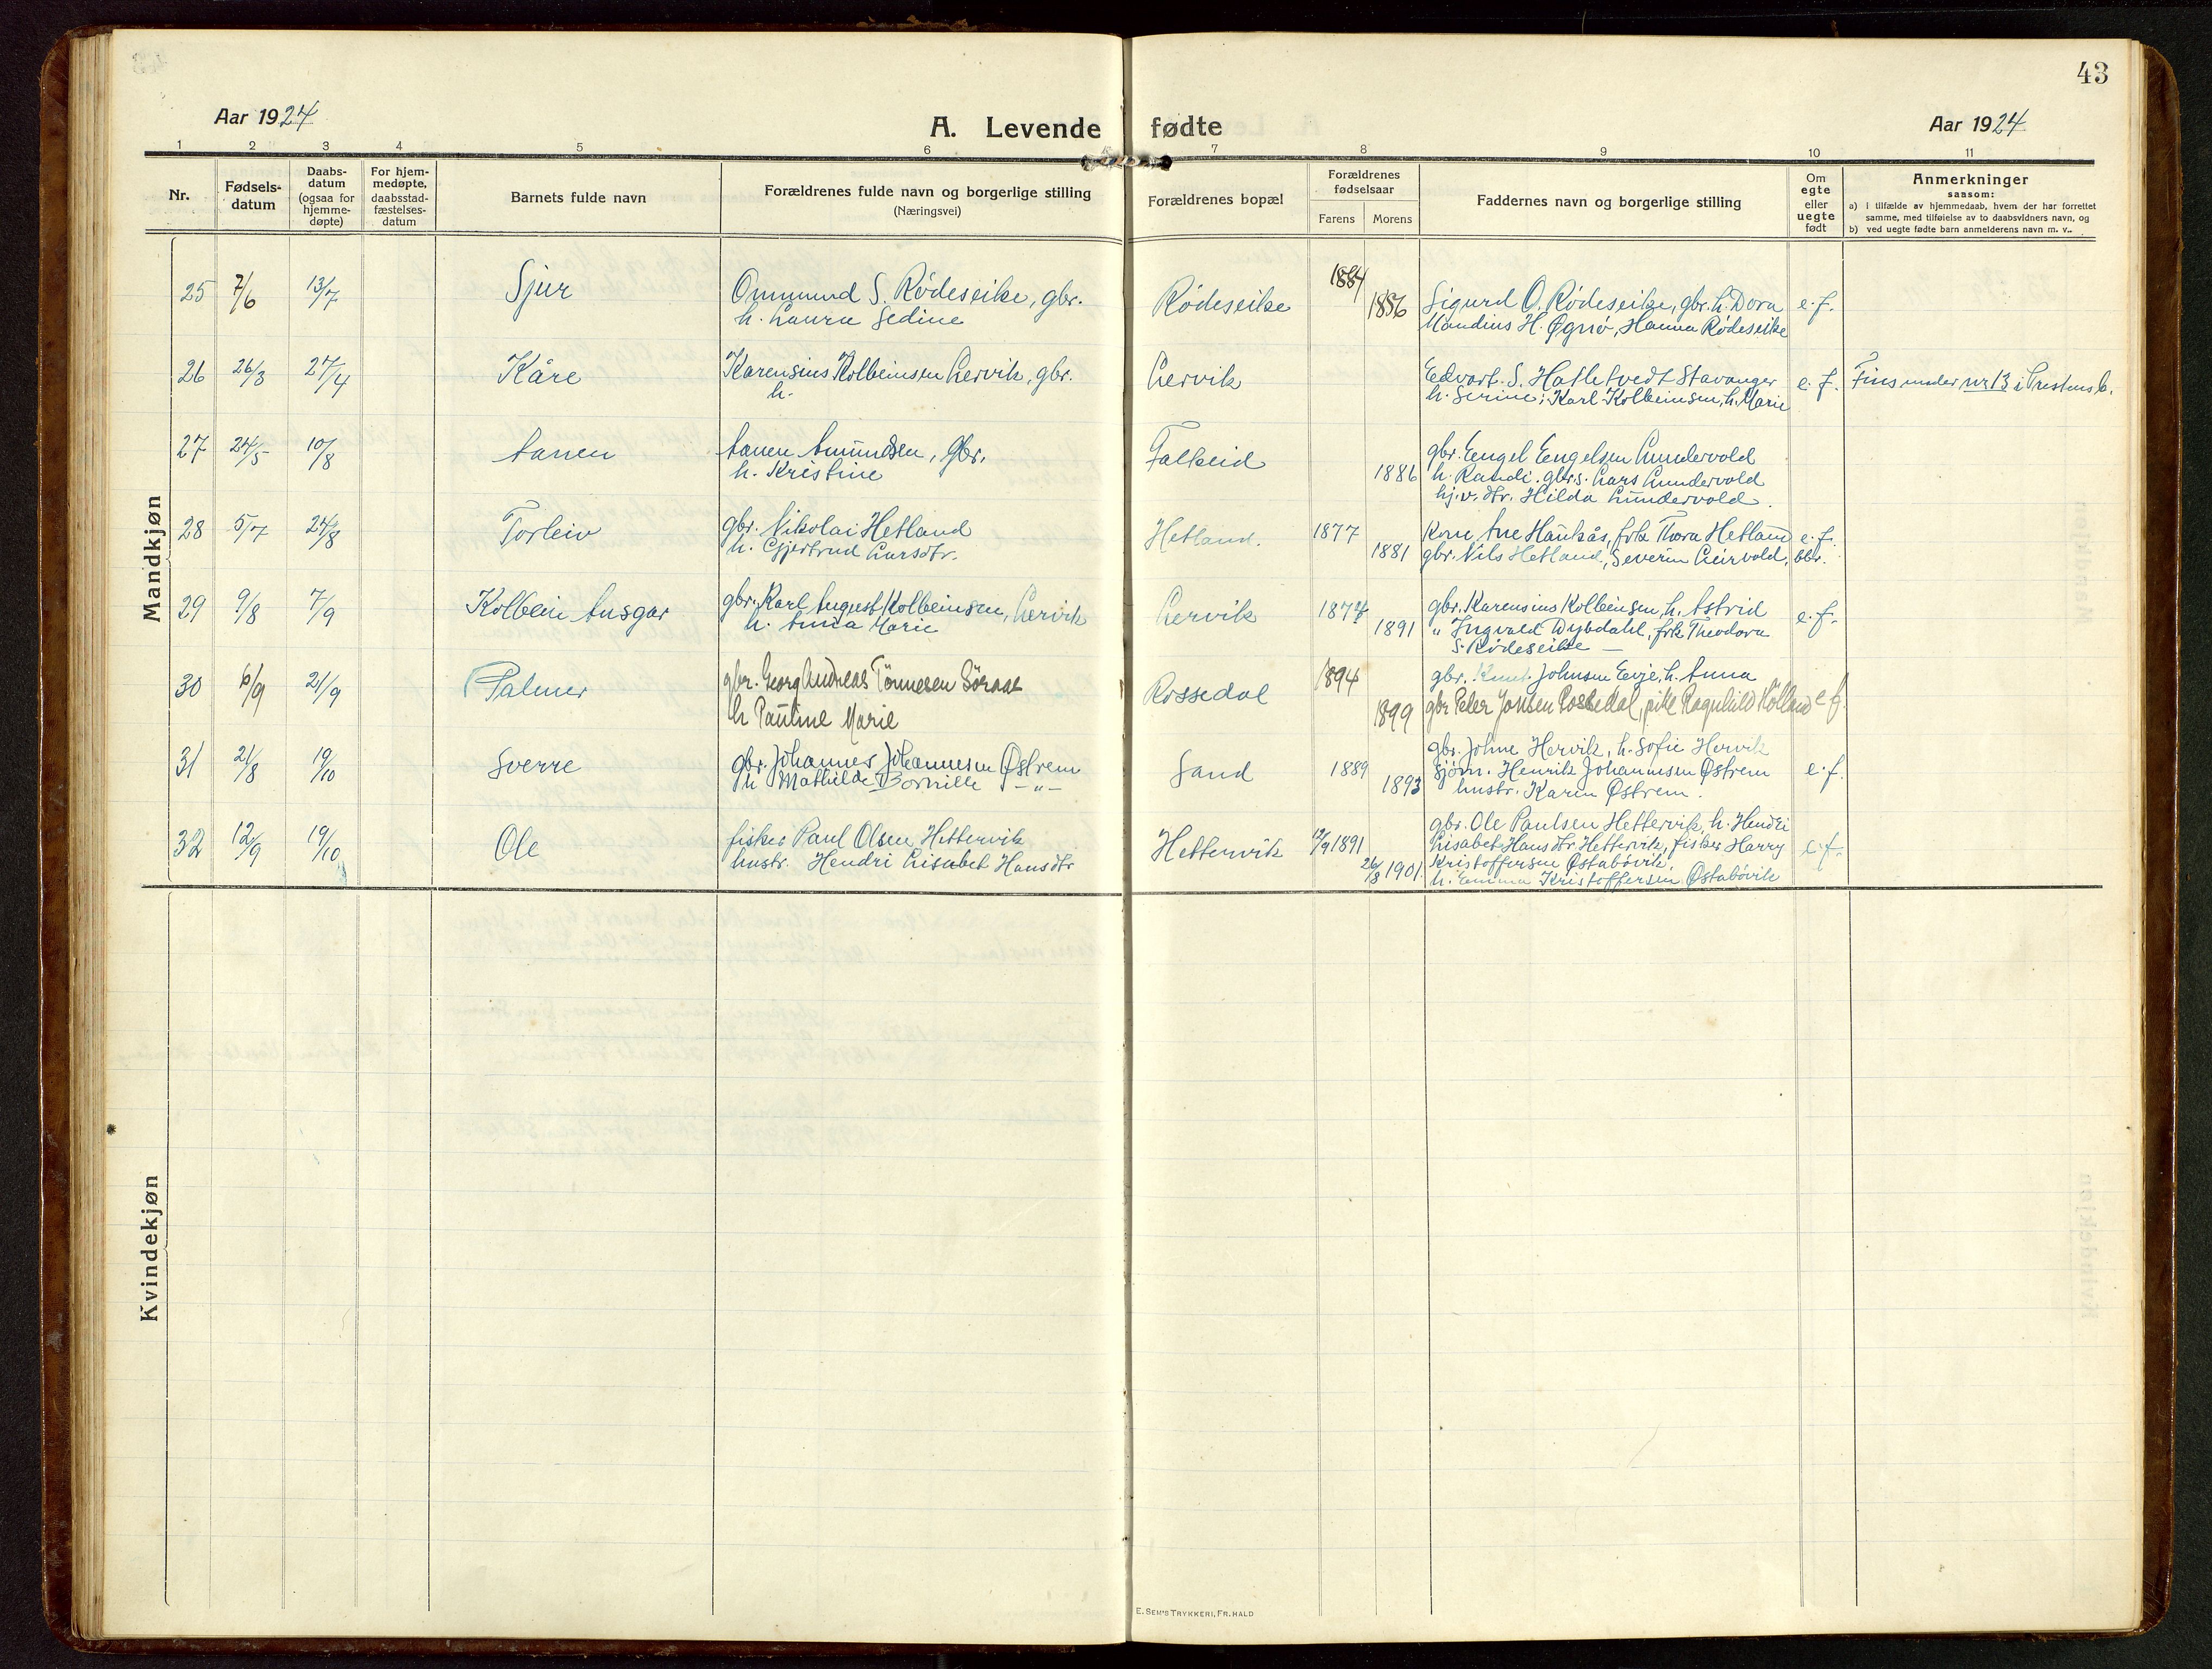 43
Aar 1924
A. Levende fødte
Aar 1924
1 2 3 4 5 6 7 8 9 10 11
Nr.
Fødsels-
datum
Daabs-
datum
(ogsaa for
hjemme-
døpte)
For hjem-
medøpte,
daabsstad-
fæstelses-
datum
Barnets fulde navn
Forældrenes fulde navn og borgerlige stilling
(Næringsvei)
Forældrenes bopæl
Forældrenes
fødselsaar
Farens Morens
Faddernes navn og borgerlige stilling
Om
egte
eller
uegte
født
Anmerkninger
saasom:
a) i tilfælde av hjemmedaab, hvem der har forrettet
samme, med tilføielse av to daabsvidners navn, og
b) ved uegte fødte barn anmelderens navn m. v..
Mandkjøn
25 7/6 13/7 Sjur Ommund S. Rødeseike, gbr. Rødeseike 1884 Sigurd O. Rødeseike, gbr. h. Dora e. f.
h. Laura Sedine 1886 Maudius H. Øgnø, Hanna Rødeseike
26 26/3 27/4 Kåre Karensius Kolbeinsen Lervik, gbr. Lervik Edvart. S. Hatletvedt Stavanger e. f. Fins under nr 13 i Prestens b.
h. h. Serine; Karl Kolbeinsen, h. Marie
27 24/5 10/8 Aanen Aanen Amundsen, gbr. Falkeid gbr. Engel Engelsen Lundervold
h. Kristine 1886 h. Randi. gbrs. Lars Lundervold
hj.v. dtr. Hilda Lundervold.
28 5/7 24/8 Torleiv gbr. Nikolai Hetland Hetland. 1877 Kone Ane Haukås, frk Thora Hetland e. f.
h. Gjertrud Larsdtr. 1881 gbr. Nils Hetland, Severin Leirvold, bbr.
29 9/8 7/9 Kolbein Ansgar gbr. Karl August Kolbeinsen, Lervik Lervik 1874 gbr. Karensius Kolbeinsen, h. Astrid e. f.
h. Anna Marie 1891 " Ingvald Dybdahl, frk Theodora
S. Rødeseike —
30 6/9 21/9 Palmer gbr. Georg Andreas Tönnesen Söraas Rossedal 1894 gbr. Knut Johnsen Eeje, h. Anna
h Pauline Marie 1899 gbr Peter Jonsen Rossedal, pike Ragnhild Kolland e f.
31 21/8 19/10 Sverre gbr. Johannes Johannesen Østrem Sand 1889 gbr. Johne Hervik, h. Sofie Hervik
h Mathilde Bornille — " — 1893 sjøm. Henrik Johannesen Østrem e. f.
hustr. Karen Østrem.
32 12/9 19/10 Ole fisker Paul Olsen Hettervik Hettervik 12/9 1891 gbr. Ole Paulsen Hettervik, h. Hendri
hustr. Hendri Lisabet Hansdtr 26/8 1901. Lisabet Hansdtr Hettervik, fisker Harry e. f.
Kristoffersen Østabøvik,
h. Emma Kristoffersen Østabøvik
Kvindekjøn
E. SEM'S TRYKKERI, FR. HALD